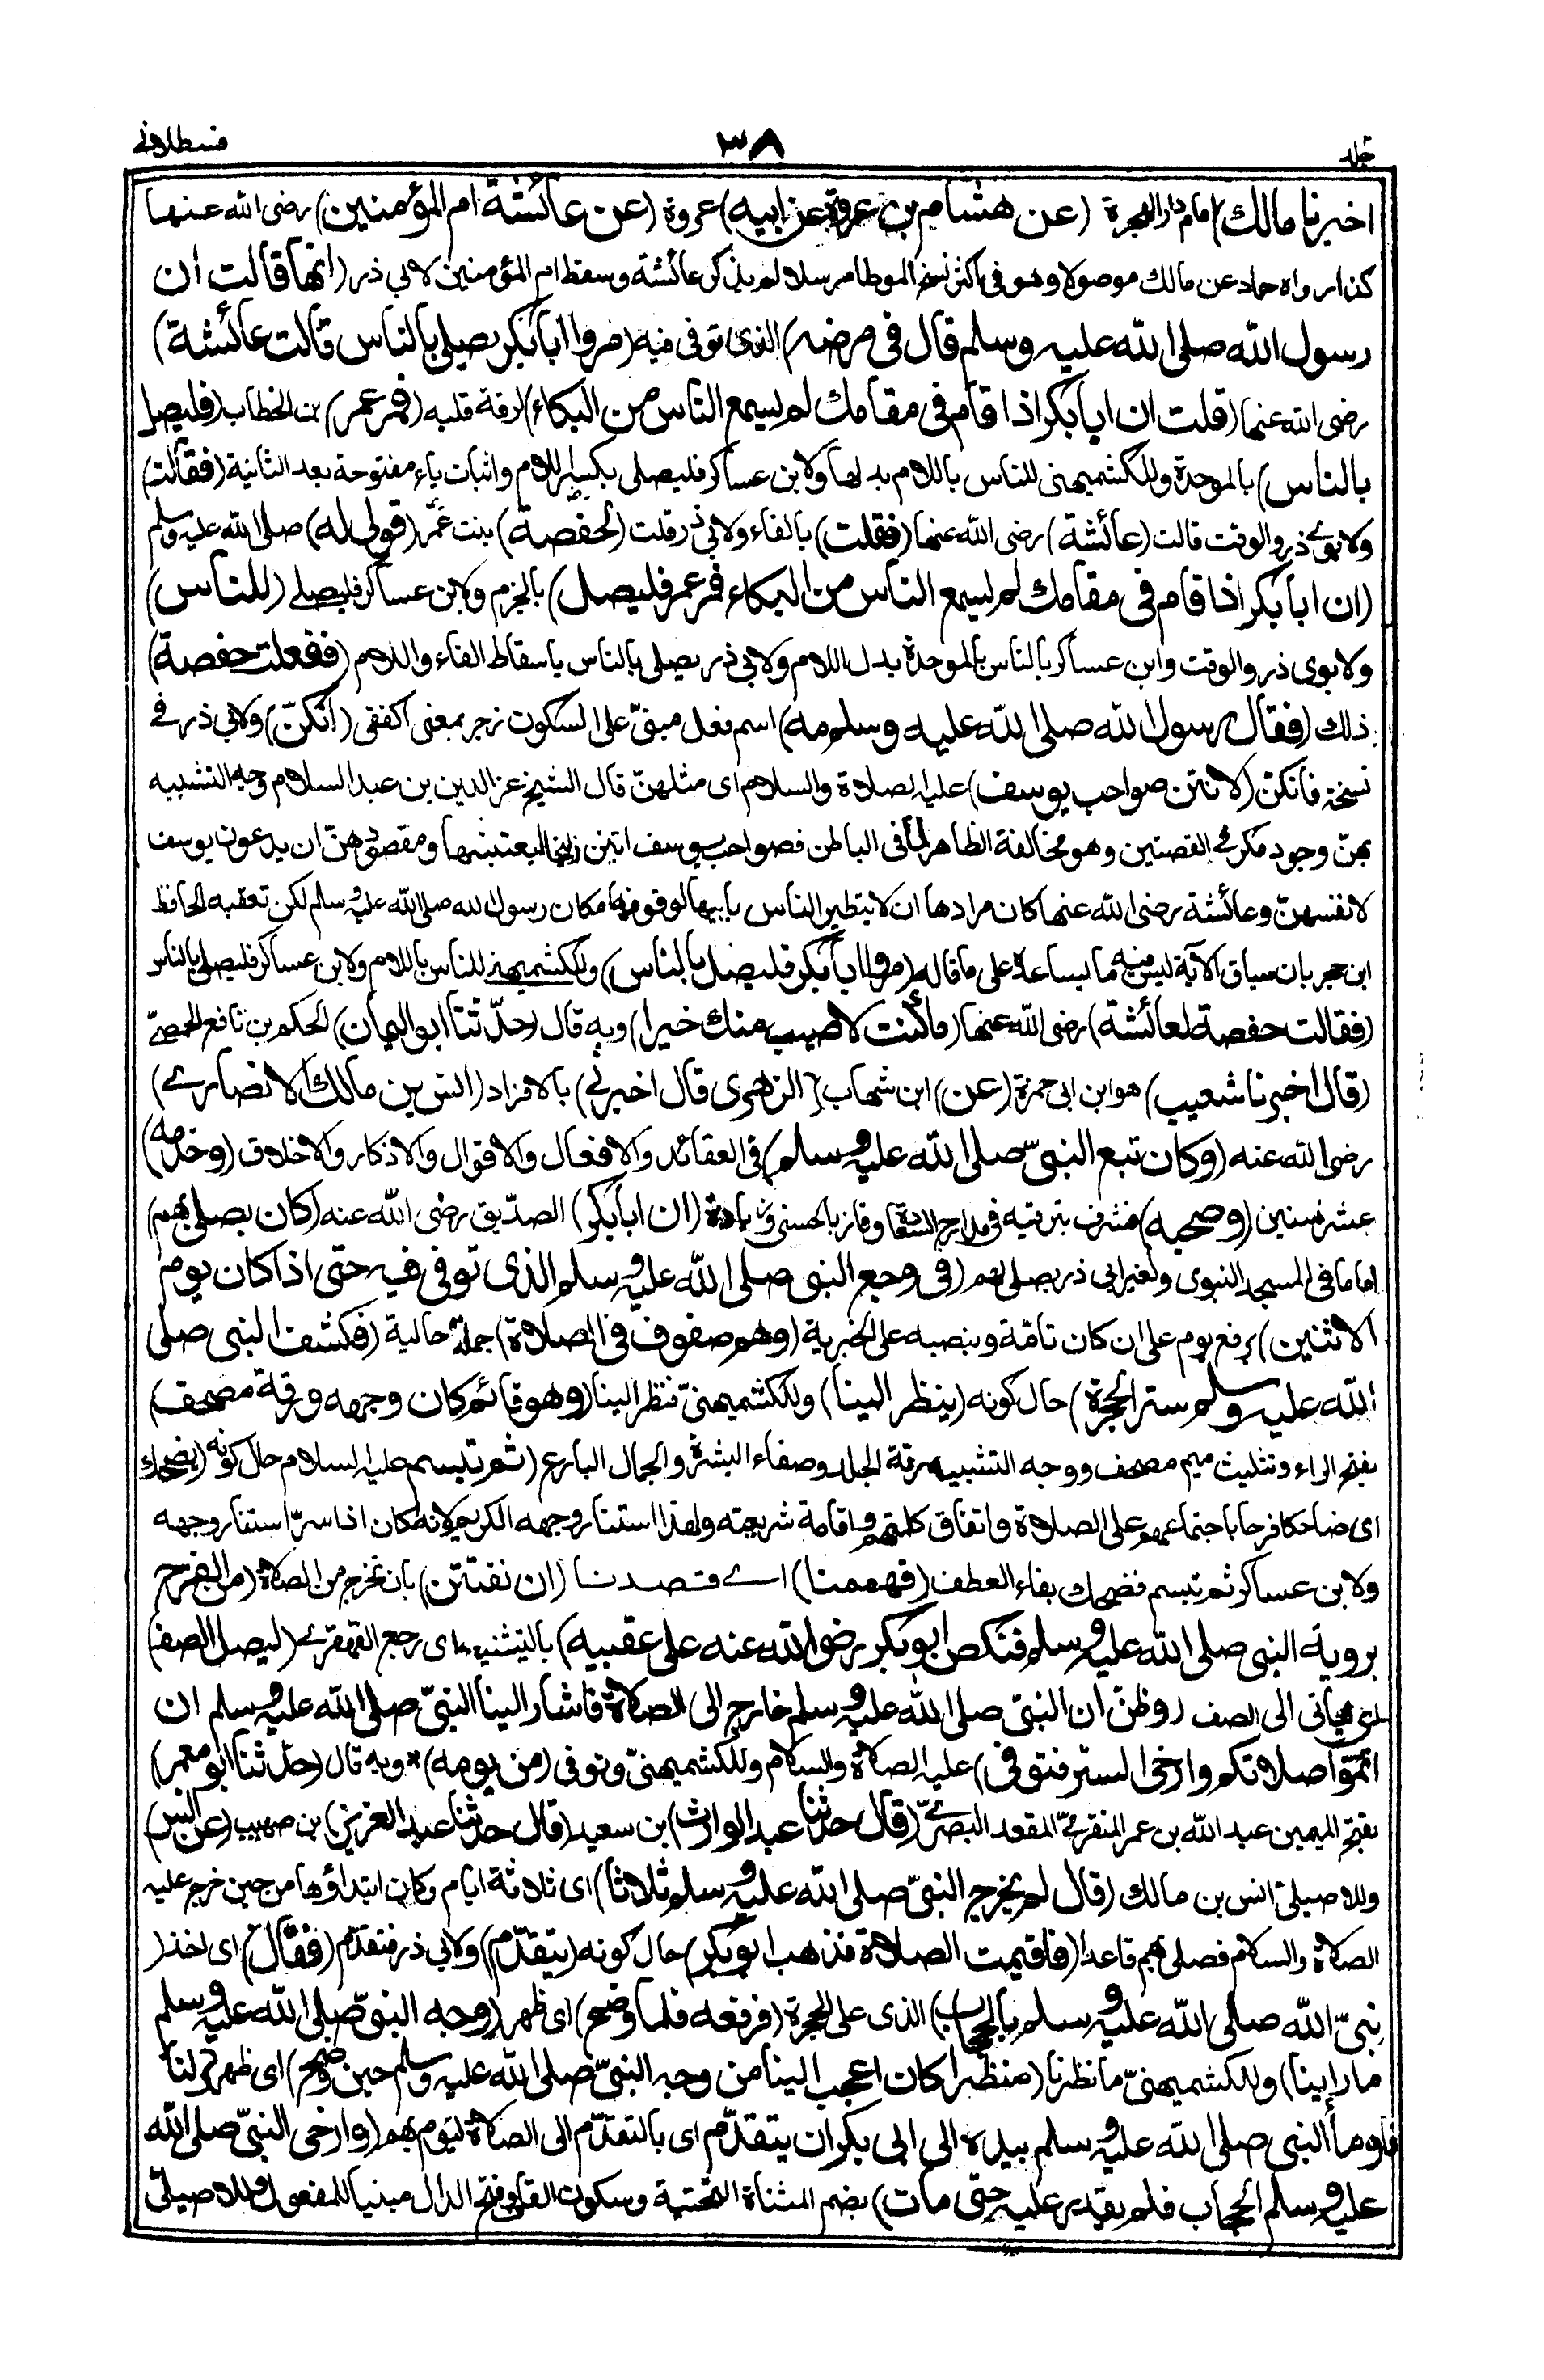 جلد ٣٨ قسطلانے
اخبرنا مالك) امام دار الهجرة (عن هشام بن عروة عن ابيه) عروة (عن عائشة ام المؤمنين) رضى الله عنها
كذا رواه حماد عن مالك موصولا وهو فى اكثر نسخ الموطا مرسلا لم يذكر عائشة وسقط ام المؤمنين لابي ذر (انها قالت ان
رسول الله صلى الله عليه وسلم قال فى مرضه) الذى توفى فيه (مروا ابا بكر يصلى بالناس قالت عائشة)
رضى الله عنها (قلت ان ابا بكر اذا قام فى مقامك لم يسمع الناس من البكاء) لرقة قلبه (فمر عمر) بن الخطاب (فليصل
بالناس) بالموحدة وللكشميهنى للناس باللام بدلها ولابن عساكر فليصلى بكسر اللام واثبات ياء مفتوحة بعد الثانية (فقالت)
ولابوے ذر والوقت قالت (عائشة) رضى الله عنها (فقلت) بالفاء ولابي ذر قلت (لحفصة) بنت عمر (قولى له) صلى الله عليه وسلم
(ان ابا بكر اذا قام فى مقامك لم يسمع الناس من البكاء فمر عمر فليصل) بالجزم ولابن عساكر فليصلے (للناس)
ولابوى ذر والوقت وابن عساكر بالناس بالموحدة بدل اللام ولابي ذر يصلى بالناس باسقاط الفاء واللام (ففعلت حفصة)
ذلك (فقال رسول الله صلى الله عليه وسلم مه) اسم فعل مبنىّ على السكون زجر بمعنى اكففى (انكنّ) ولابي ذر فے
نسخة فانكنّ (لانتن صواحب يوسف) عليه الصلاة والسلام اى مثلهنّ قال الشيخ عز الدين بن عبد السلام وجه التشبيه
بهنّ وجود مكر فے القصتين وهو مخالفة الظاهر لما فى الباطن فصواحب يوسف اتين زليخا ليعتبنها ومقصودهنّ ان يدعون يوسف
لانفسهنّ وعائشة رضى الله عنها كان مرادها ان لا يتطير الناس بابيها لوقوفه مكان رسول الله صلى الله عليه وسلم لكن تعقبه الحافظ
ابن حجر بان سياق الآية ليس فيه ما يساعده على ما قاله (مروا ابا بكر فليصل بالناس) وللكشميهنے للناس باللام ولابن عساكر فليصلى بالناس
(فقالت حفصة لعائشة) رضى الله عنها (ما كنت لاصيب منك خيرا) وبه قال (حدّثنا ابو اليمان) الحكم بن نافع الحمصىّ
(قال اخبرنا شعيب) هو ابن ابى حمزة (عن) ابن شهاب (الزهرى قال اخبرنى) بالافراد (انس بن مالك الانصارے)
رضى الله عنه (وكان تبع النبىّ صلى الله عليه وسلم) فى العقائد والافعال والاقوال والاذكار والاخلاق (وخدمه)
عشر سنين (وصحبه) فشرف بترقيه فى مدارج السعادة وفاز بالحسنى وزيادة (ان ابا بكر) الصدّيق رضى الله عنه (كان يصلى بهم)
اماما فى المسجد النبوى ولغير ابى ذر يصلى لهم (فى وجع النبى صلى الله عليه وسلم الذى توفى فيه حتى اذا كان يوم
الاثنين) برفع يوم على ان كان تامّة وبنصبه على الخبرية (وهم صفوف فى الصلاة) جملة حالية (فكشف النبى صلى
الله عليه وسلم ستر الحجرة) حال كونه (ينظر الينا) وللكشميهنىّ فنظر الينا (وهو قائم كان وجهه ورقة مصحف)
بفتح الراء وتثليث ميم مصحف ووجه التشبيه رقة الجلد وصفاء البشرة والجمال البارع (ثم تبسم) عليه السلام حال كونه (يضحك)
اى ضاحكا فرحا باجتماعهم على الصلاة واتفاق كلمتهم واقامة شريعته ولهذا استنار وجهه الكريم لانه كان اذا سرّ استنار وجهه
ولابن عساكر ثم تبسم فضحك بفاء العطف (فهممنا) اے قصدنا (ان نفتتن) بان نخرج من الصلاة (من الفرح
بروية النبى صلى الله عليه وسلم فنكص ابو بكر رضى الله عنه على عقبيه) بالتثنية اى رجع القهقرے (ليصل الصف)
اى ياتى الى الصف (وظنّ ان النبىّ صلى الله عليه وسلم خارج الى الصلاة فاشار الينا النبىّ صلى الله عليه وسلم ان
اتمّوا صلاتكم وارخى الستر فتوفى) عليه الصلاة والسلام وللكشميهنىّ وتوفى (من يومه) * وبه قال (حدّثنا ابو معمر)
بفتح الميمين عبد الله بن عمر المنقرىّ المقعد البصرىّ (قال حدثنا عبد الوارث) ابن سعيد (قال حدثنا عبد العزيز) بن صهيب (عن انس)
وللاصيلىّ انس بن مالك (قال لم يخرج النبىّ صلى الله عليه وسلم ثلاثا) اى ثلاثة ايام وكان ابتداؤها من حين خرج عليه
الصلاة والسلام فصلى بهم قاعدا (فاقيمت الصلاة فذهب ابو بكر) حال كونه (يتقدّم) ولابي ذر فتقدّم (فقال) اى اخذ (
نبىّ الله صلى الله عليه وسلم بالحجاب) الذى على الحجرة (فرفعه فلما وضح) اى ظهر (وجه النبىّ صلى الله عليه وسلم
ما راينا) وللكشميهنىّ ما نظرنا (منظرا كان اعجب الينا من وجه النبىّ صلى الله عليه وسلم حين وضح) اى ظهر (لنا
فاوما النبى صلى الله عليه وسلم بيده الى ابى بكر ان يتقدّم اى بالتقدّم الى الصلاة ليؤم بهم (وارخى النبىّ صلى الله
عليه وسلم الحجاب فلم يقدر عليه حتى مات) بضم المثناة التحتية وسكون القاف وفتح الدال مبنيا للمفعول وللاصيلىّ